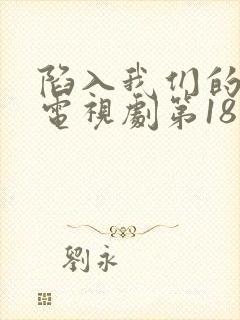 陷入我们的
電視劇第18
劉永